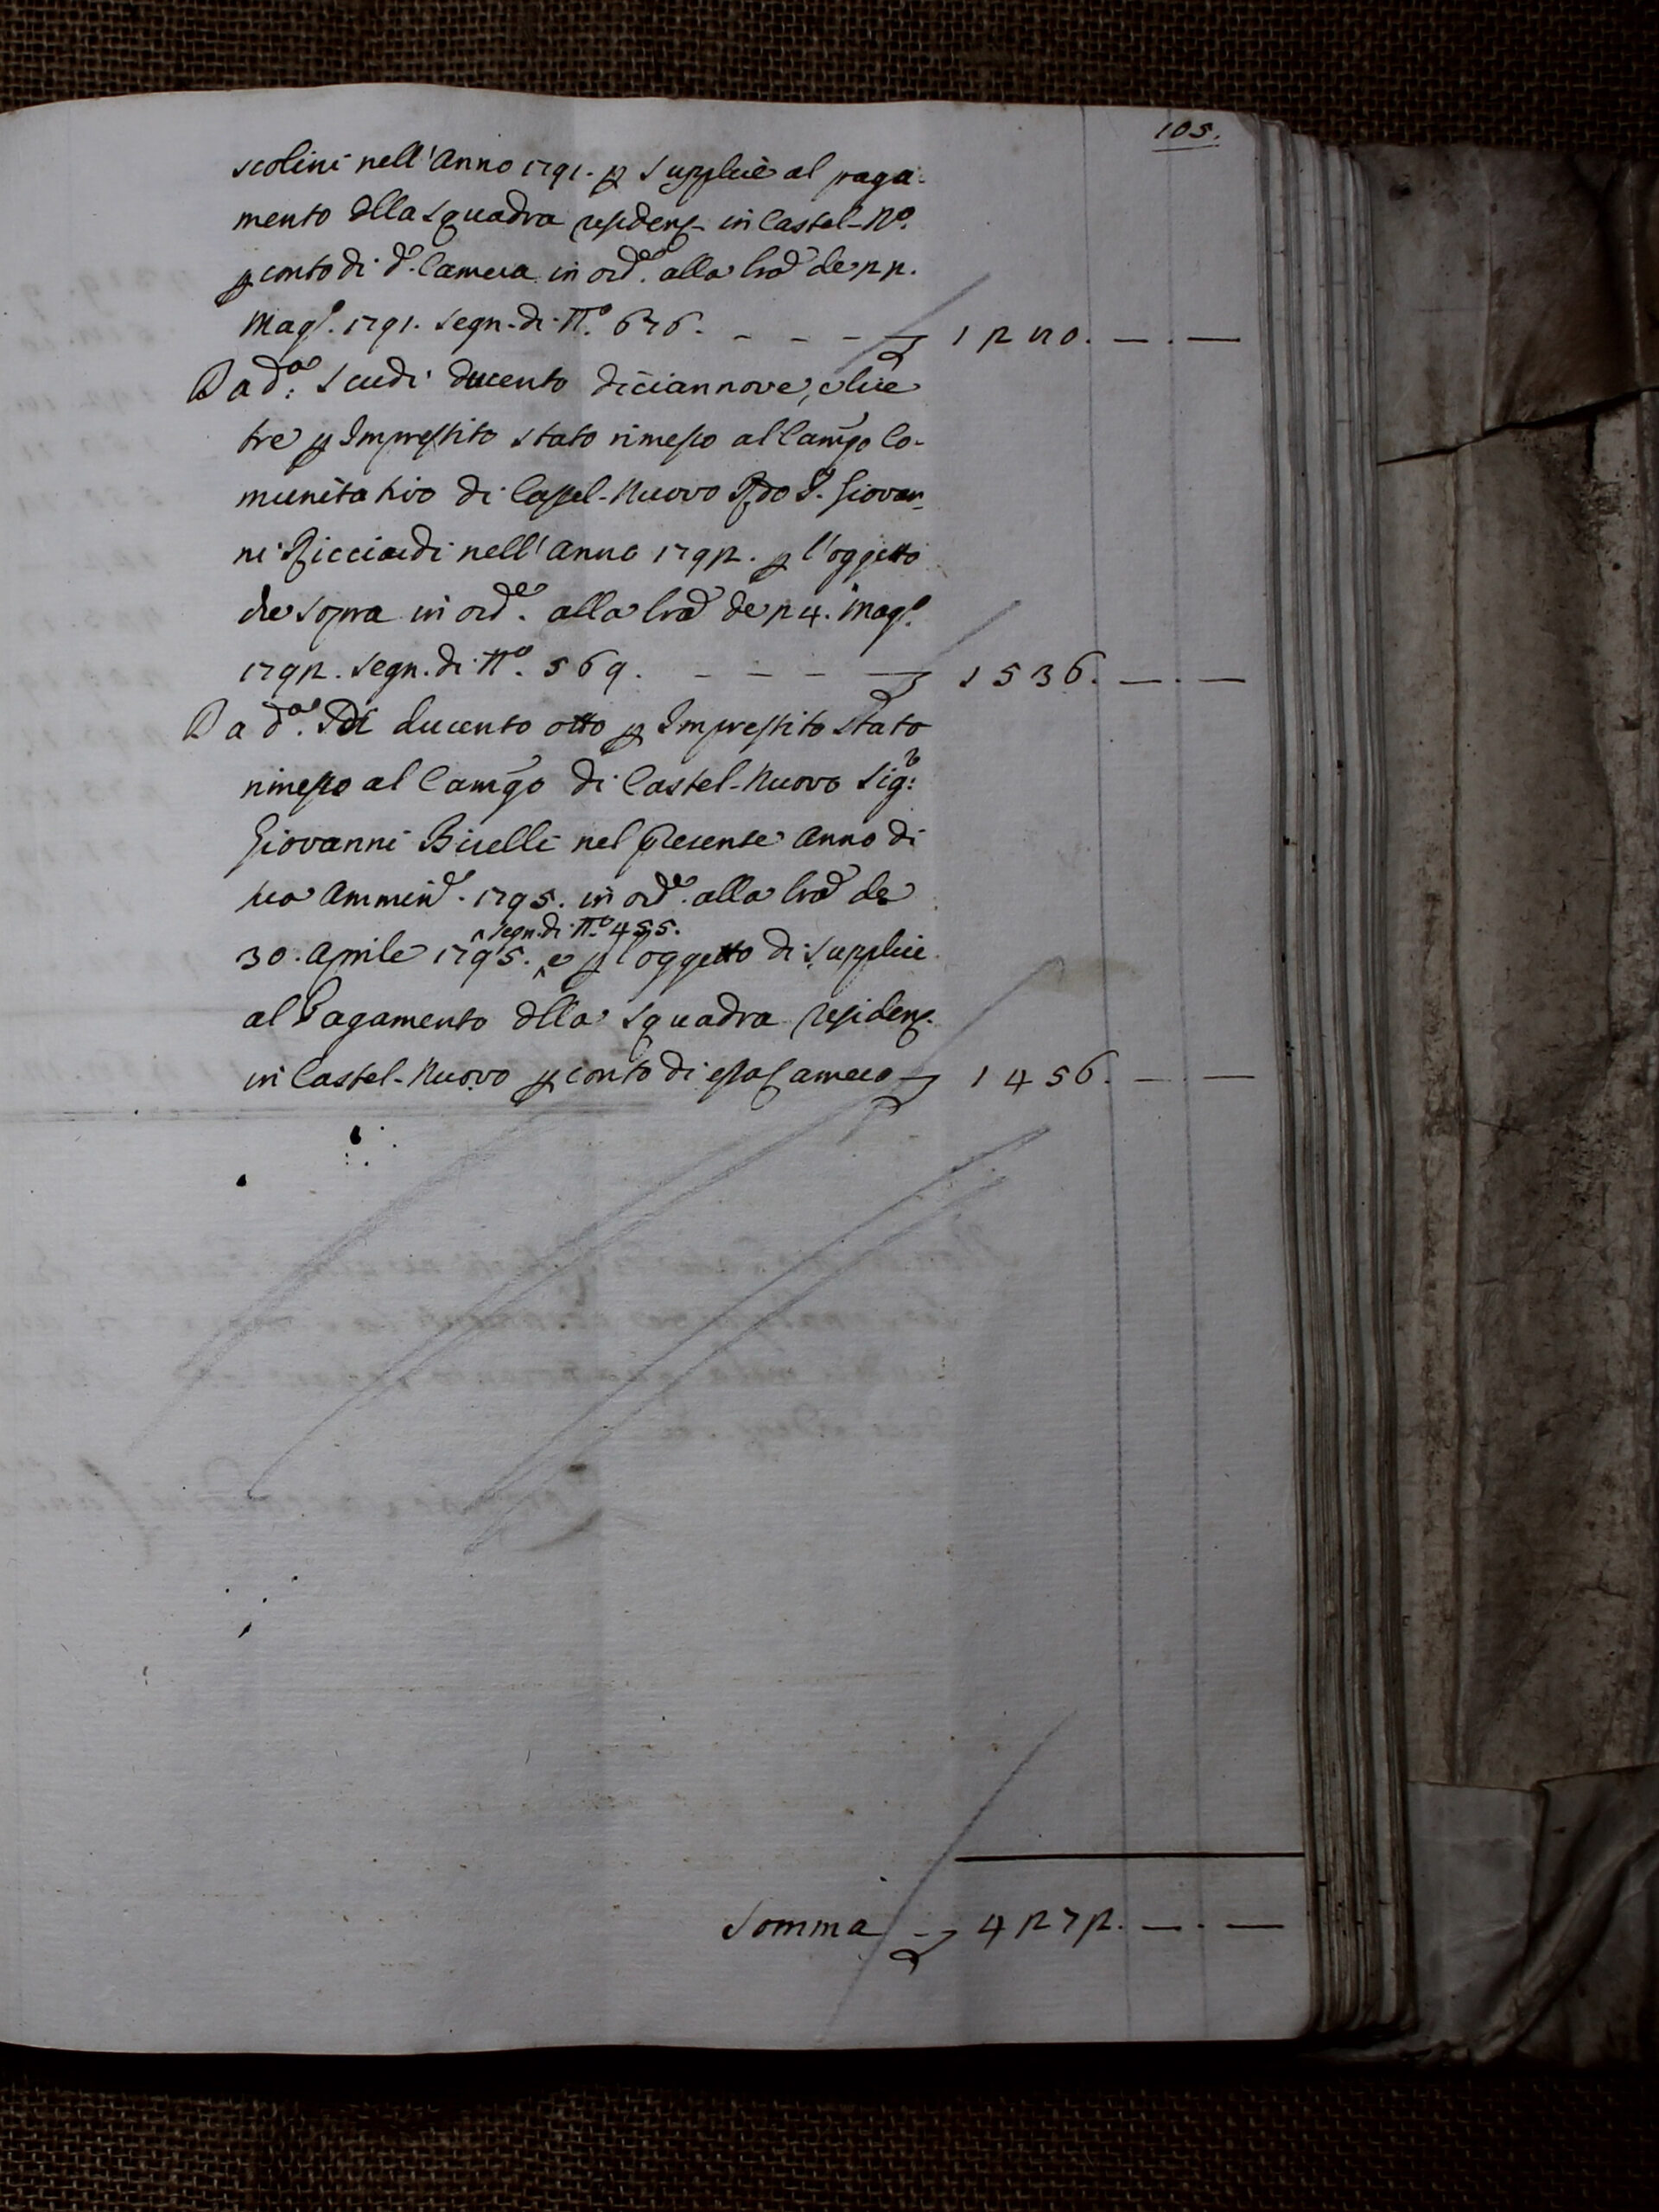 105.
scolini nell'Anno 1791. p supplire al paga-
mento dlla squadra residenz in Castel-N.º
p conto di d.ª Camera in ord.e alla lrã de 22.
Magg.º 1791. segn. di N.º 676. - - - - 1280. — . —
A ad.ª Scudi ducento diciannove, e lire
tre p Imprestito stato rimesso al Camgo Co-
munitativo di Castel-Nuovo Giovan-
ni Ricciardi nell'Anno 1792. p l'oggetto
che sopra in ord.e alla lrã de 24. Magg.º
1792. segn. di N.º 569. - - - - 1536. — . —
A ad.ª Sdi ducento otto p Imprestito stato
rimesso al Camgo di Castel-Nuovo Sig.r
Giovanni Biselli nel presente Anno di
sua Ammind. 1795. in ord.e alla lrã de
segn. di N.º 455.
30. Aprile 1795. e p l'oggetto di supplire
al Pagamento dlla squadra residenz.
in Castel-Nuovo p conto di essa Camera 1456. — . —
Somma - 4272. — . —